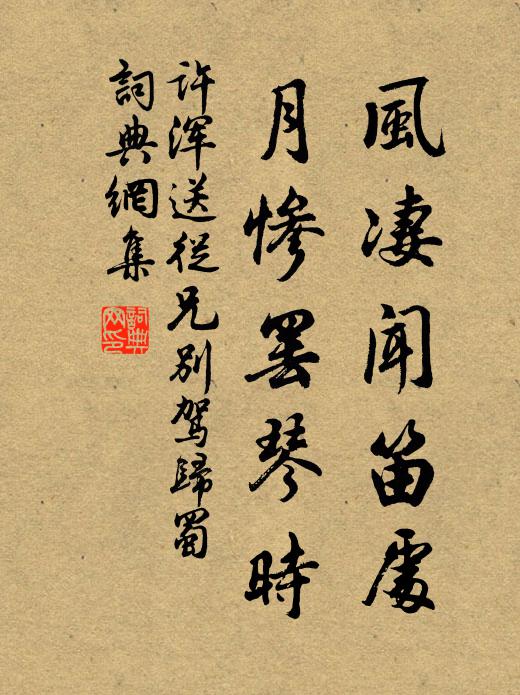 風凄聞笛處
月慘罷琴時
許渾送從兄別駕歸蜀
詞典網集
詞典
网印